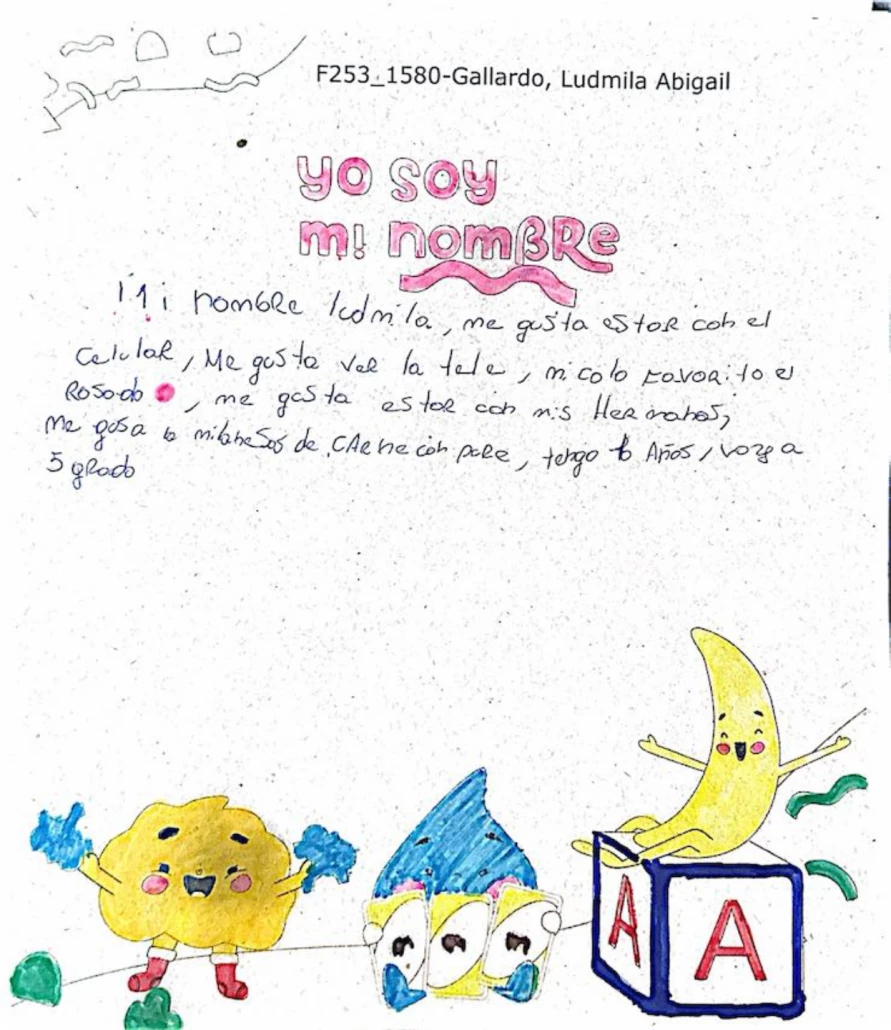 F253_1580-Gallardo, Ludmila Abigail
yo soy
mi nomBRe
Mi nombre ludmila, me gusta estar con el
celular, Me gusta ver la tele, mi colo favorito el
Rosado, me gusta estar con mis Hermanos,
Me gusa la milanesas de CARne con pure, tengo Años, voy a
5 grado
A A